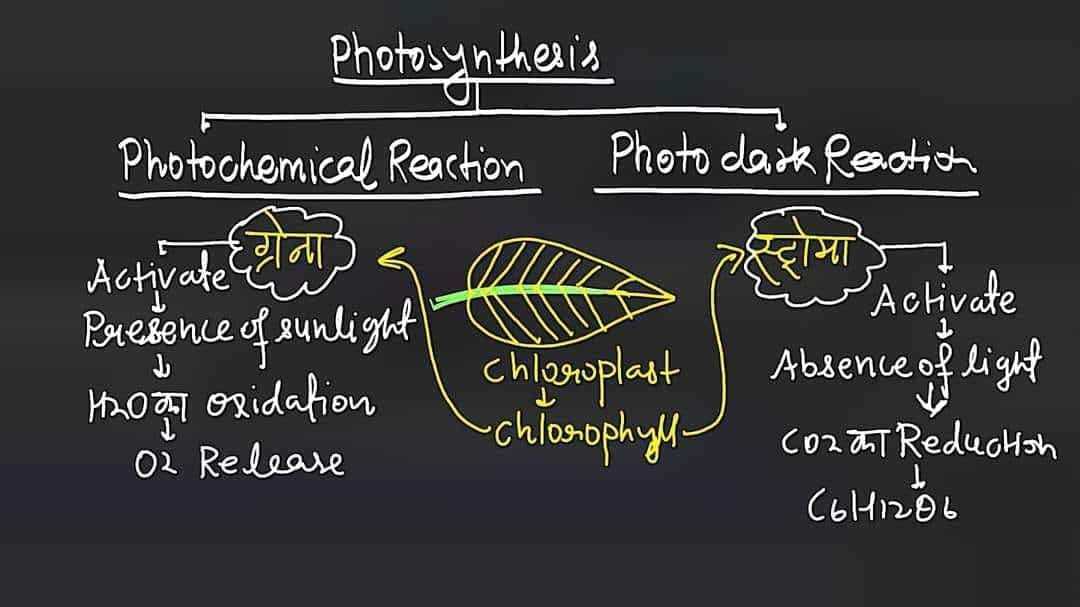 Photosynthesis
Photochemical Reaction
Photo dark Reaction
ग्रेना
Activate
Presence of sunlight
H2O का oxidation
O2 Release
chloroplast
chlorophyll
स्ट्रोमा
Activate
Absence of light
CO2 का Reduction
C6H12O6